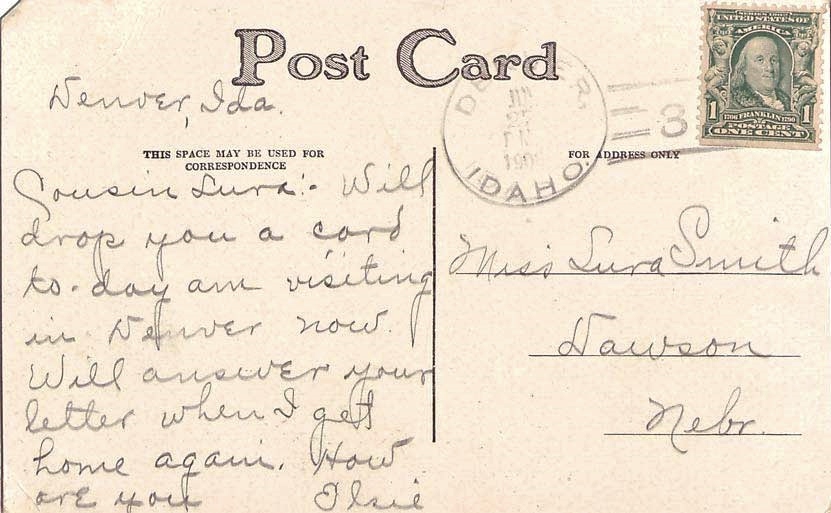 Post Card
Denver, Ida.
THIS SPACE MAY BE USED FOR
CORRESPONDENCE
Cousin Lura:- Will
drop you a card
to-day am visiting
in Denver now.
Will answer your
letter when I get
home again. How
are you Elsie
DENVER,
PM
IDAHO.
3
SERIES 1902
UNITED STATES OF
AMERICA
1 1
1706 FRANKLIN 1790
POSTAGE
ONE CENT
FOR ADDRESS ONLY
Miss Lura Smith
Dawson
Nebr.